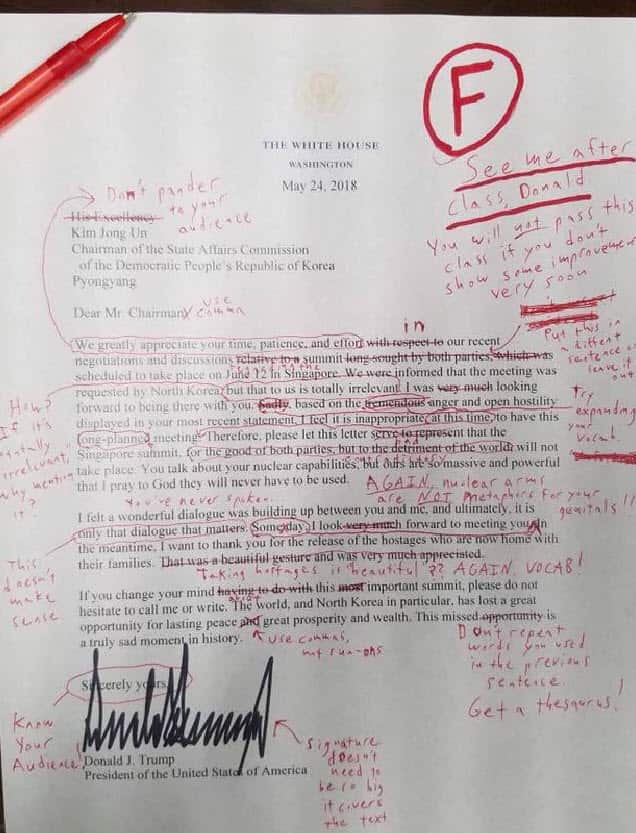 F
See me after
class, Donald
You will not pass this
class if you don't
show some improvement
very soon
THE WHITE HOUSE
WASHINGTON
May 24, 2018
Don't pander
to your
audience
His Excellency
Kim Jong Un
Chairman of the State Affairs Commission
of the Democratic People's Republic of Korea
Pyongyang
Dear Mr. Chairman
use
comma
in
We greatly appreciate your time, patience, and effort with respect to our recent
negotiations and discussions relative to a summit long sought by both parties, which was
scheduled to take place on June 12 in Singapore. We were informed that the meeting was
requested by North Korea, but that to us is totally irrelevant. I was very much looking
forward to being there with you. Sadly, based on the tremendous anger and open hostility
displayed in your most recent statement, I feel it is inappropriate, at this time, to have this
long-planned meeting. Therefore, please let this letter serve to represent that the
Singapore summit, for the good of both parties, but to the detriment of the world, will not
take place. You talk about your nuclear capabilities, but ours are so massive and powerful
that I pray to God they will never have to be used.
Put this in
a diffent
sentence or
leave it
out
How?
If it's
totally
irrelevant,
why mention
it?
Try
expanding
your
Vocab.
AGAIN, nuclear arms
are NOT metaphors for your
genitals!!
You've never spoken...
I felt a wonderful dialogue was building up between you and me, and ultimately, it is
only that dialogue that matters. Some day, I look very much forward to meeting you. In
the meantime, I want to thank you for the release of the hostages who are now home with
their families. That was a beautiful gesture and was very much appreciated.
This
doesn't
make
sense
Taking hostages is beautiful?? AGAIN. VOCAB!
If you change your mind having to do with this most important summit, please do not
about
hesitate to call me or write. The world, and North Korea in particular, has lost a great
opportunity for lasting peace and great prosperity and wealth. This missed opportunity is
a truly sad moment in history.
use commas,
not run-ons
Don't repeat
words you used
in the previous
sentence.
Get a thesaurus!
Sincerely yours,
Know
Your
Audience!
Donald J. Trump
President of the United States of America
signature
doesn't
need to
be so big
it covers
the text